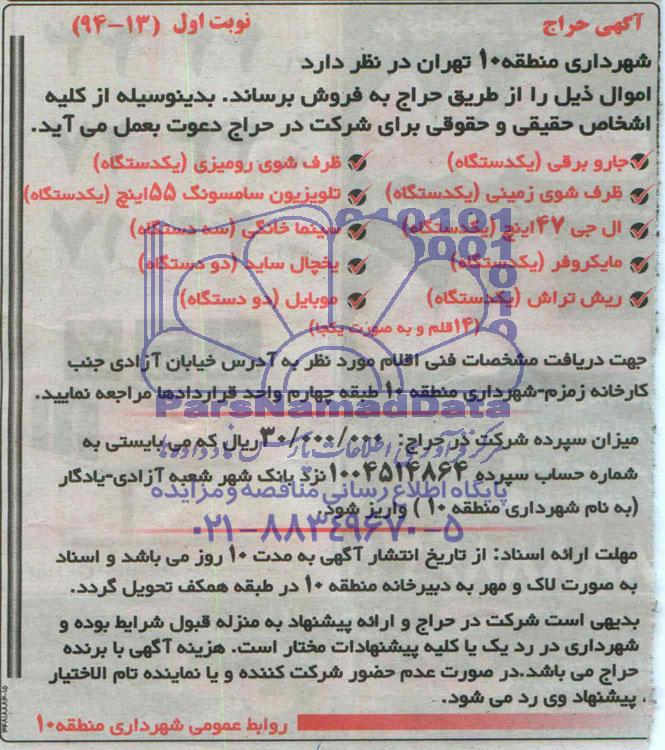 آگهی حراج
نوبت اول (۱۳-۹۴)
شهرداری منطقه۱۰ تهران در نظر دارد
اموال ذیل را از طریق حراج به فروش برساند. بدینوسیله از کلیه
اشخاص حقیقی و حقوقی برای شرکت در حراج دعوت بعمل می آید.
جارو برقی (یکدستگاه)
ظرف شوی رومیزی (یکدستگاه)
ظرف شوی زمینی (یکدستگاه)
تلویزیون سامسونگ ۵۵اینچ (یکدستگاه)
ال جی ۴۷اینچ (یکدستگاه)
سینما خانگی (سه دستگاه)
مایکروفر (یکدستگاه)
یخچال ساید (دو دستگاه)
ریش تراش (یکدستگاه)
موبایل (دو دستگاه)
(۱۴قلم و به صورت یکجا)
جهت دریافت مشخصات فنی اقلام مورد نظر به آدرس خیابان آزادی جنب
کارخانه زمزم-شهرداری منطقه ۱۰ طبقه چهارم واحد قراردادها مراجعه نمایید.
ParsNamadData
میزان سپرده شرکت در حراج: ۳۰/۰۰۰/۰۰۰ریال که می بایستی به
مرکز فرآوری اطلاعات پارس نماد داده‌ها
شماره حساب سپرده ۱۰۰۴۵۱۴۸۶۴ نزد بانک شهر شعبه آزادی-یادگار
پایگاه اطلاع رسانی مناقصه و مزایده
(به نام شهرداری منطقه ۱۰) واریز شود.
۰۲۱-۸۸۳۴۹۶۷۰-۵
مهلت ارائه اسناد: از تاریخ انتشار آگهی به مدت ۱۰ روز می باشد و اسناد
به صورت لاک و مهر به دبیرخانه منطقه ۱۰ در طبقه همکف تحویل گردد.
بدیهی است شرکت در حراج و ارائه پیشنهاد به منزله قبول شرایط بوده و
شهرداری در رد یک یا کلیه پیشنهادات مختار است. هزینه آگهی با برنده
حراج می باشد.در صورت عدم حضور شرکت کننده و یا نماینده تام الاختیار
، پیشنهاد وی رد می شود.
روابط عمومی شهرداری منطقه۱۰